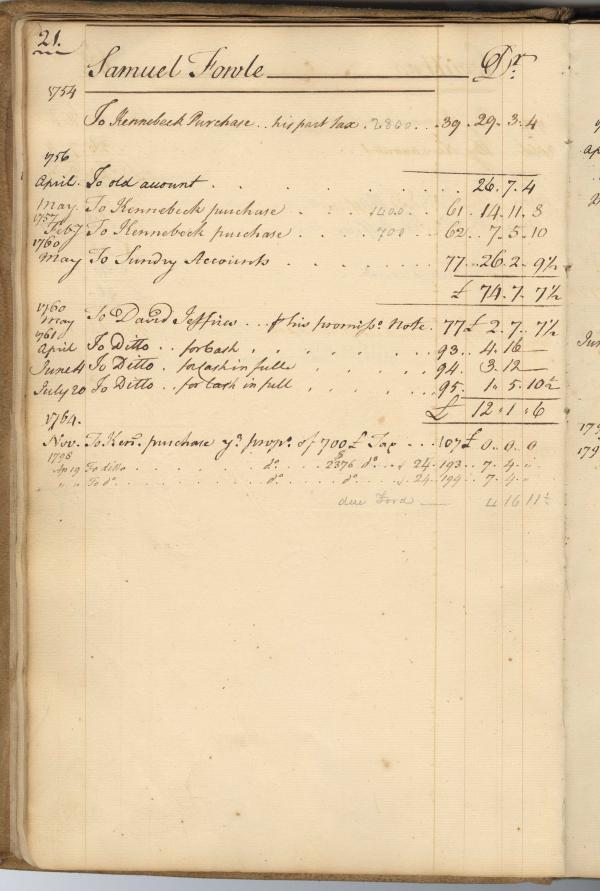 21.
Samuel Fowle Dr.
1754
To Kennebeck Purchase .. his part tax . 2800 . . . 39 . 29 . 3 . 4
1756
April . To old account . . . . . . . . . 26 . 7 . 4
May . To Kennebeck purchase . . 1400 . . 61 . 14 . 11 . 8
1757
Feby To Kennebeck purchase . . . 700 . . 62 . . 7 . 5 . 10
1760
May To Sundry Accounts . . . . . . . 77 . . 26 . 2 . 9½
£ 74 . 7 . 7½
1760
May To David Jeffries . . . his promiso. Note . 77 £ 2 . 7 . 7½
1761
April To Ditto . . for Cash . . . . . . 93 . . 4 . 16 —
June 4 To Ditto . . for Cash in full . . . . 94 . . 3 . 12 —
July 20 To Ditto . . for Cash in full . . . . 95 . . 1 . 5 . 10½
£ 12 . 1 . 6
1764.
Nov. To Ken. purchase yr. propo. of 700 £ Tax . . . 107 £ 0 . . 0 . . 0
1798
Ap 19 To ditto . . . . . . do. . . . . 2376 do. . . 24 . 193 . . 7 . 4 . "
" " To do. . . . . . . do. . . . . do. . . 24 . 194 . . 7 . 4 . "
due Ford — 4 16 11½